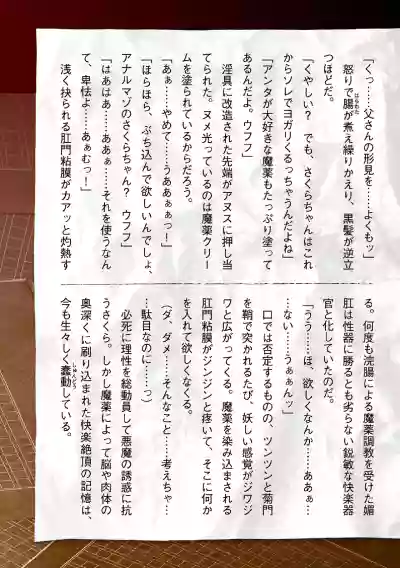 「くっ……父さんの形見を……よくもッ」
怒りで腸が煮え繰りかえり、黒髪が逆立
はらわた
つほどだ。
「くやしい？　でも、さくらちゃんはこれ
からソレでヨガりくるっちゃうんだよね」
「アンタが大好きな魔薬もたっぷり塗って
あるんだよ。ウフフ」
淫具に改造された先端がアヌスに押し当
てられた。ヌメ光っているのは魔薬クリー
ムを塗られているからだろう。
「あぁ……やめて……うああぁぁっ！」
「ほらほら、ぶち込んで欲しいんでしょ、
アナルマゾのさくらちゃん？　ウフフ」
「はあはあ……ああぁ……それを使うなん
て、卑怯よ……あぁむっ！」
浅く抉られる肛門粘膜がカアッと灼熱す
る。何度も浣腸による魔薬調教を受けた媚
肛は性器に勝るとも劣らない鋭敏な快楽器
官と化していたのだ。
「うう……ほ、欲しくなんか……ああぁ…
…ない……うぁぁんッ」
口では否定するものの、ツンツンと菊門
を鞘で突かれるたび、妖しい感覚がジワジ
ワと広がってくる。魔薬を染み込まされる
肛門粘膜がジンジンと疼いて、そこに何か
を入れて欲しくなる。
（ダ、ダメ……そんなこと……考えちゃ…
…駄目なのに……っ）
必死に理性を総動員して悪魔の誘惑に抗
うさくら。しかし魔薬によって脳や肉体の
奥深くに刷り込まれた快楽絶頂の記憶は、
今も生々しく蠢動している。
しゅんどう